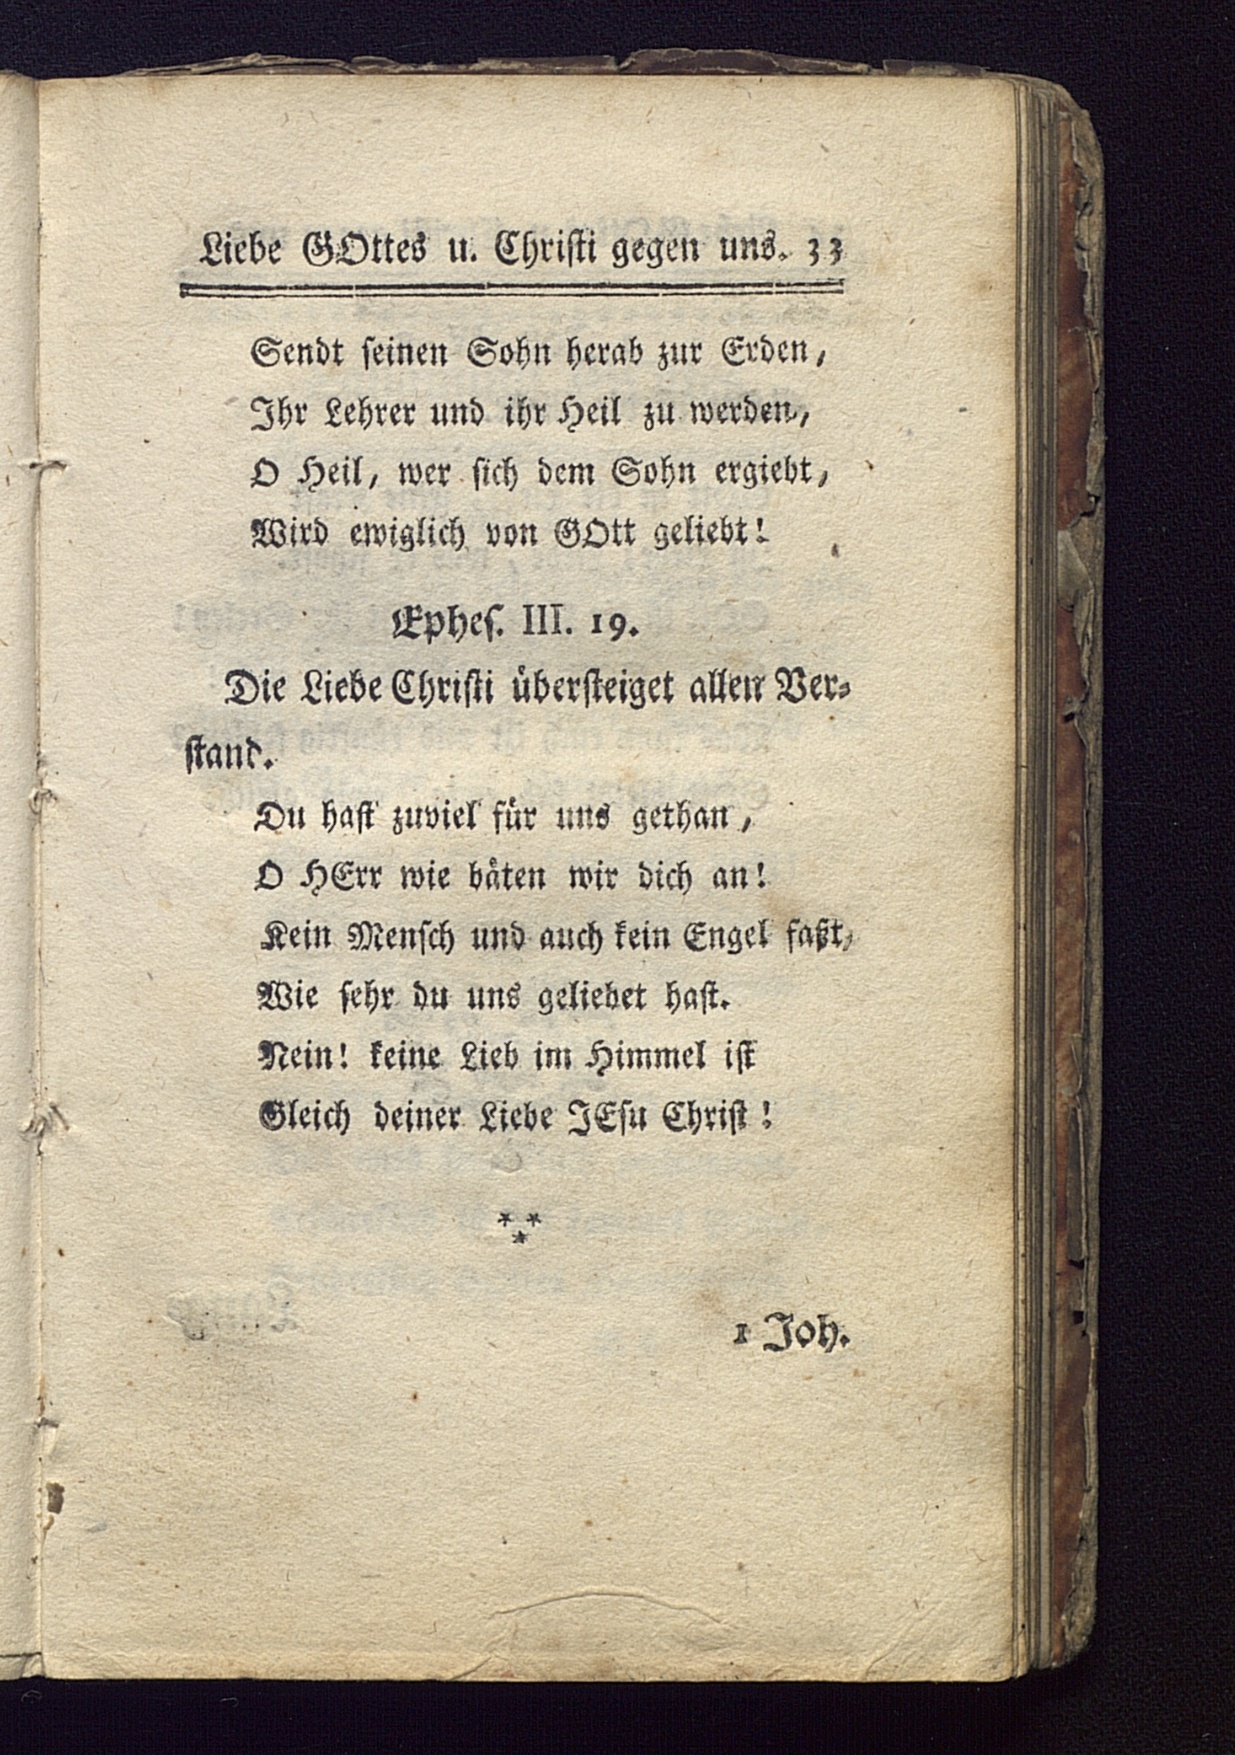 Liebe GOttes u. Christi gegen uns. 33
Sendt seinen Sohn herab zur Erden,
Ihr Lehrer und ihr Heil zu werden,
O Heil, wer sich dem Sohn ergiebt,
Wird ewiglich von GOtt geliebt!
Ephes. III. 19.
Die Liebe Christi übersteiget allen Ver-
stand.
Du hast zuviel für uns gethan,
O HErr wie bäten wir dich an!
Kein Mensch und auch kein Engel faßt,
Wie sehr du uns geliebet hast.
Nein! keine Lieb im Himmel ist
Gleich deiner Liebe JEsu Christ!
* *
*
1 Joh.